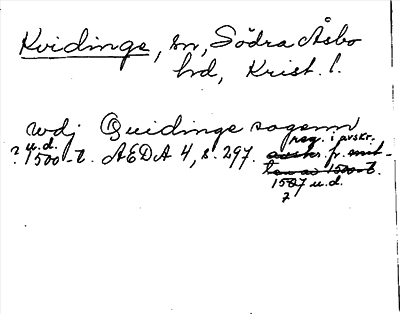 Kvidinge, sn, Södra Åsbo
hd, Krist. l.
wdj Quidinge sogenn
u.d. reg. i avskr.
? 1500-t. AEDA 4, s. 297. avskr. fr. mit-
ten av 1500-t.
1507 u.d.
?